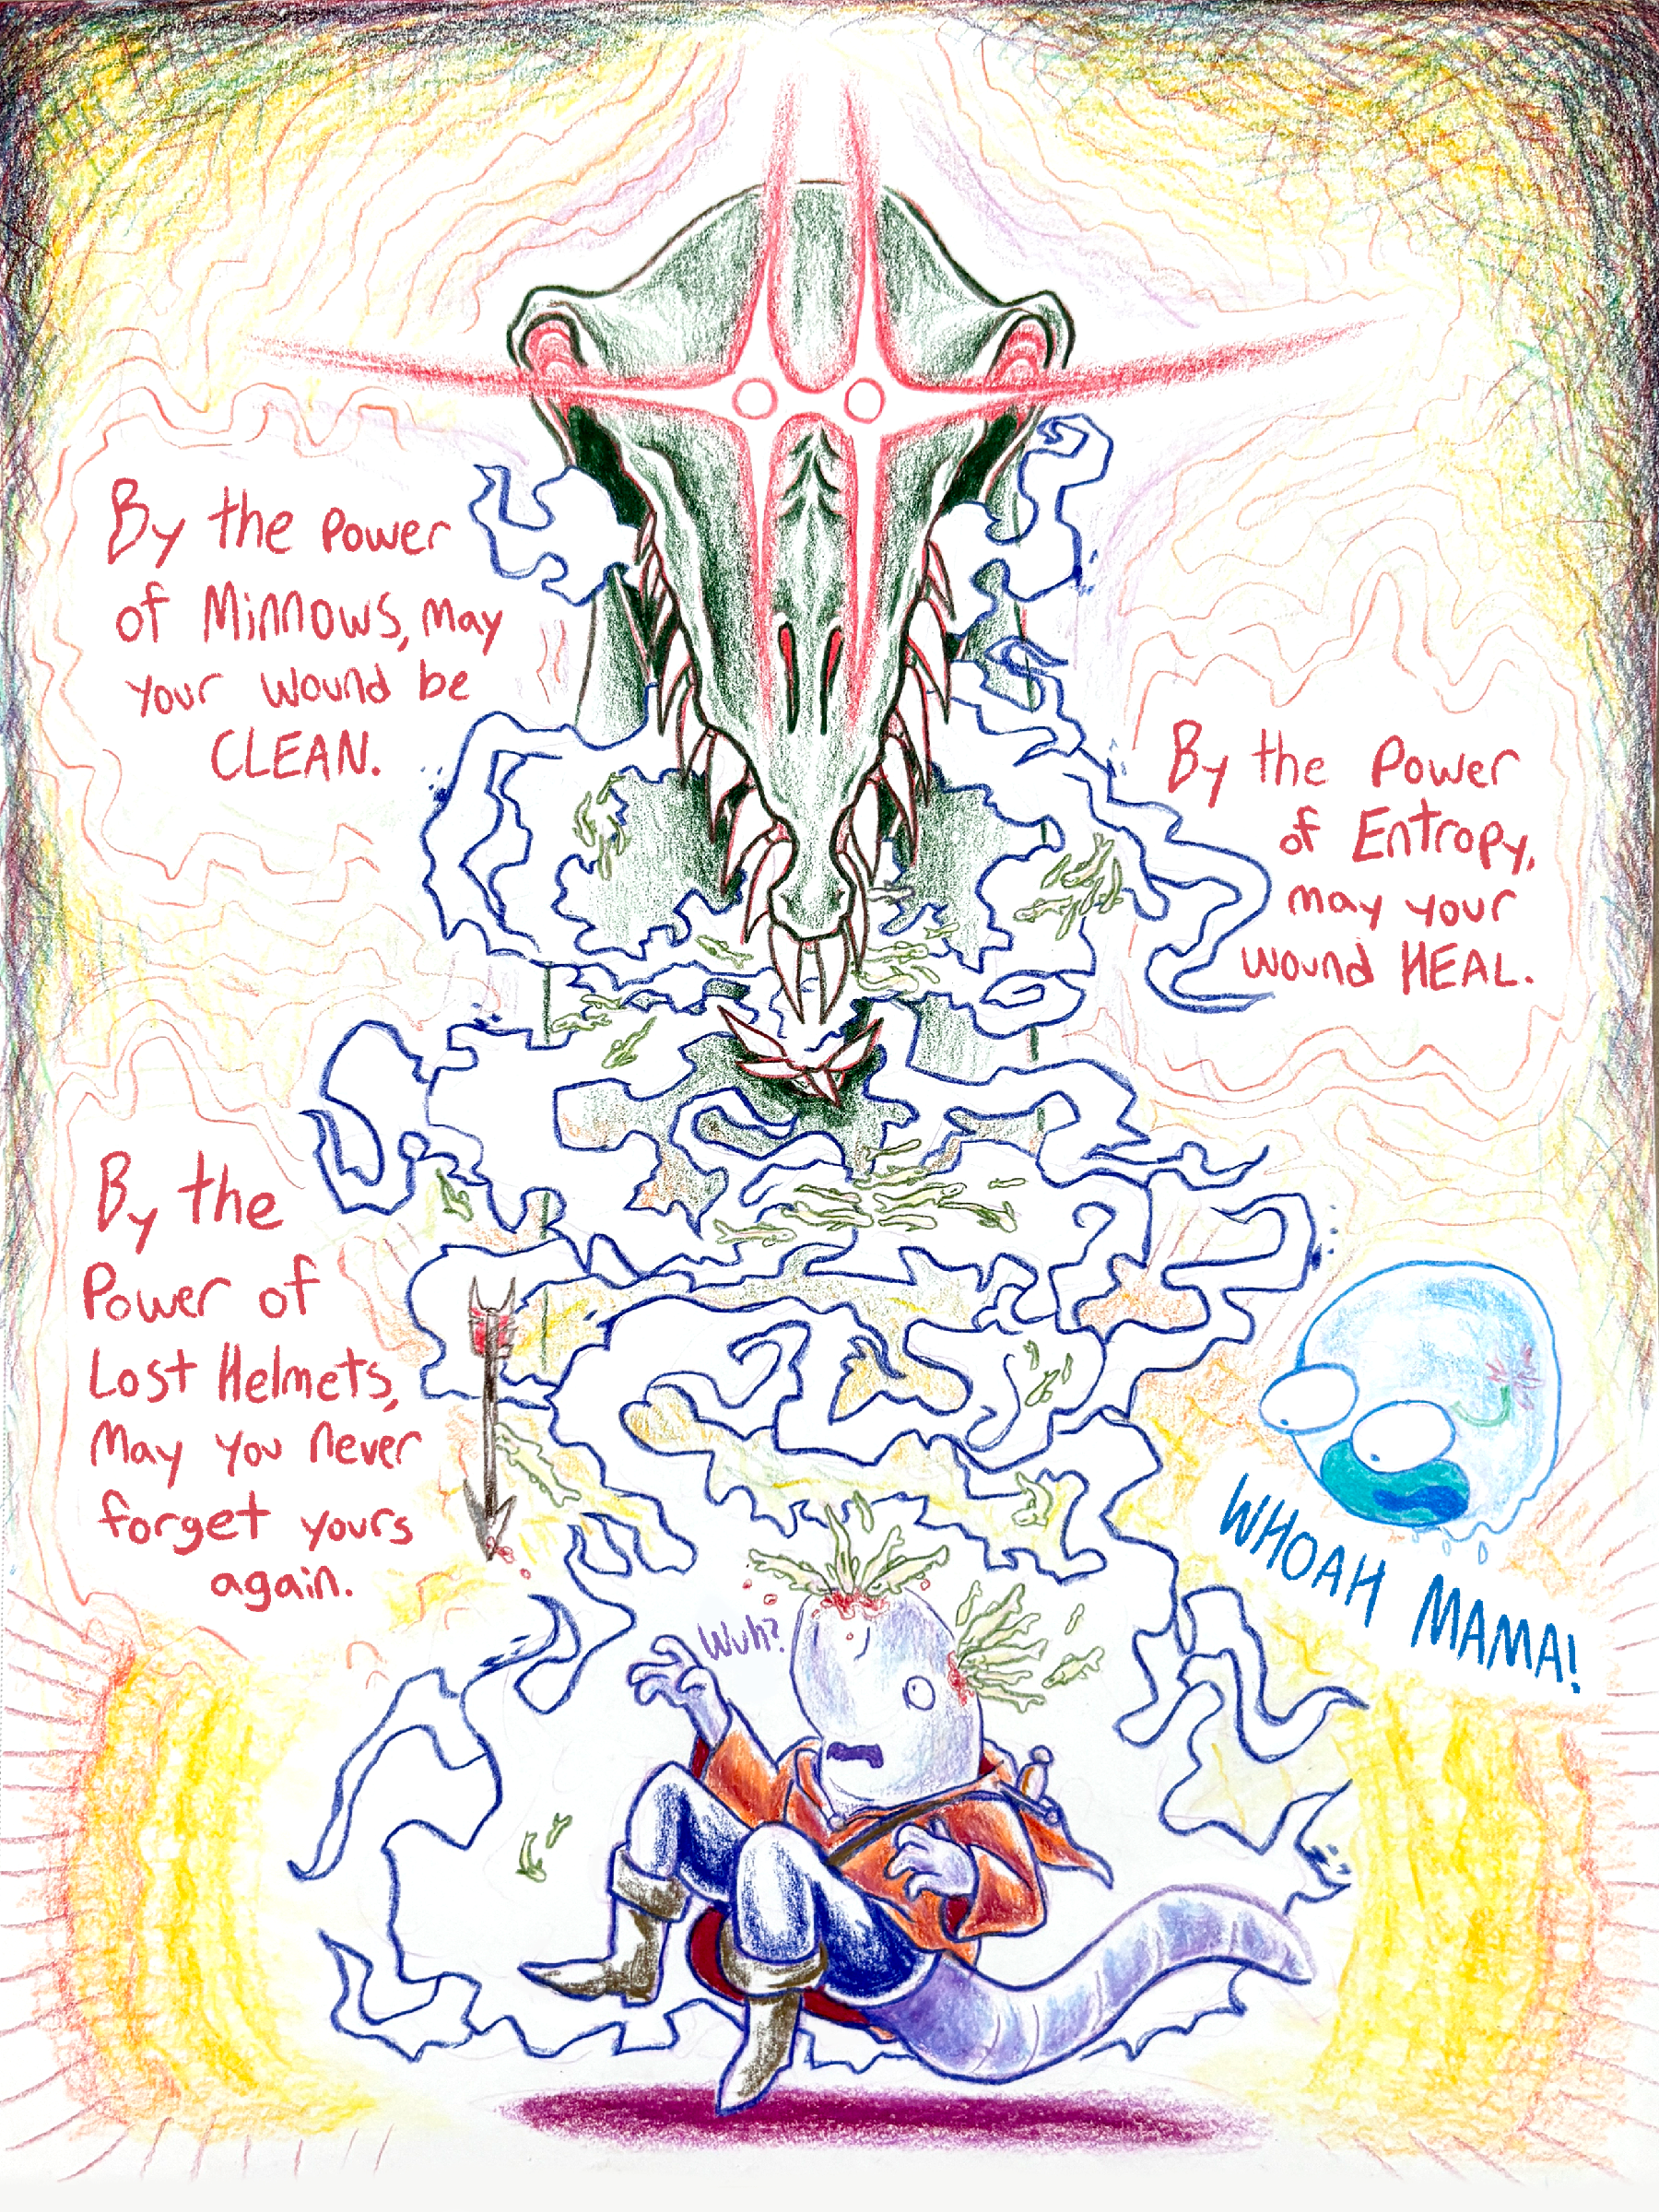 By the Power
of Minnows, may
your wound be
CLEAN.
By the Power
of Entropy,
may your
wound HEAL.
By the
Power of
Lost Helmets,
May you never
forget yours
again.
WHOAH MAMA!
Wuh?